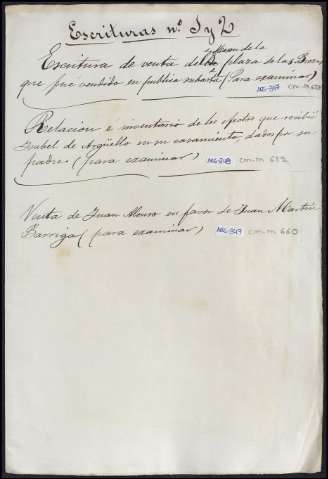 Escrituras nº 1 y 2
Escritura de venta de la plaza de las
que fué vendido en publica subasta (Para examinar)
Relacion é inventario de los efectos que recibió
Isabel de Argüello en su casamiento, dados por su
padre (para examinar) cm-m 659
Venta de Juan Alonso en favor de Juan Martin
Barriga (para examinar) cm-m 660